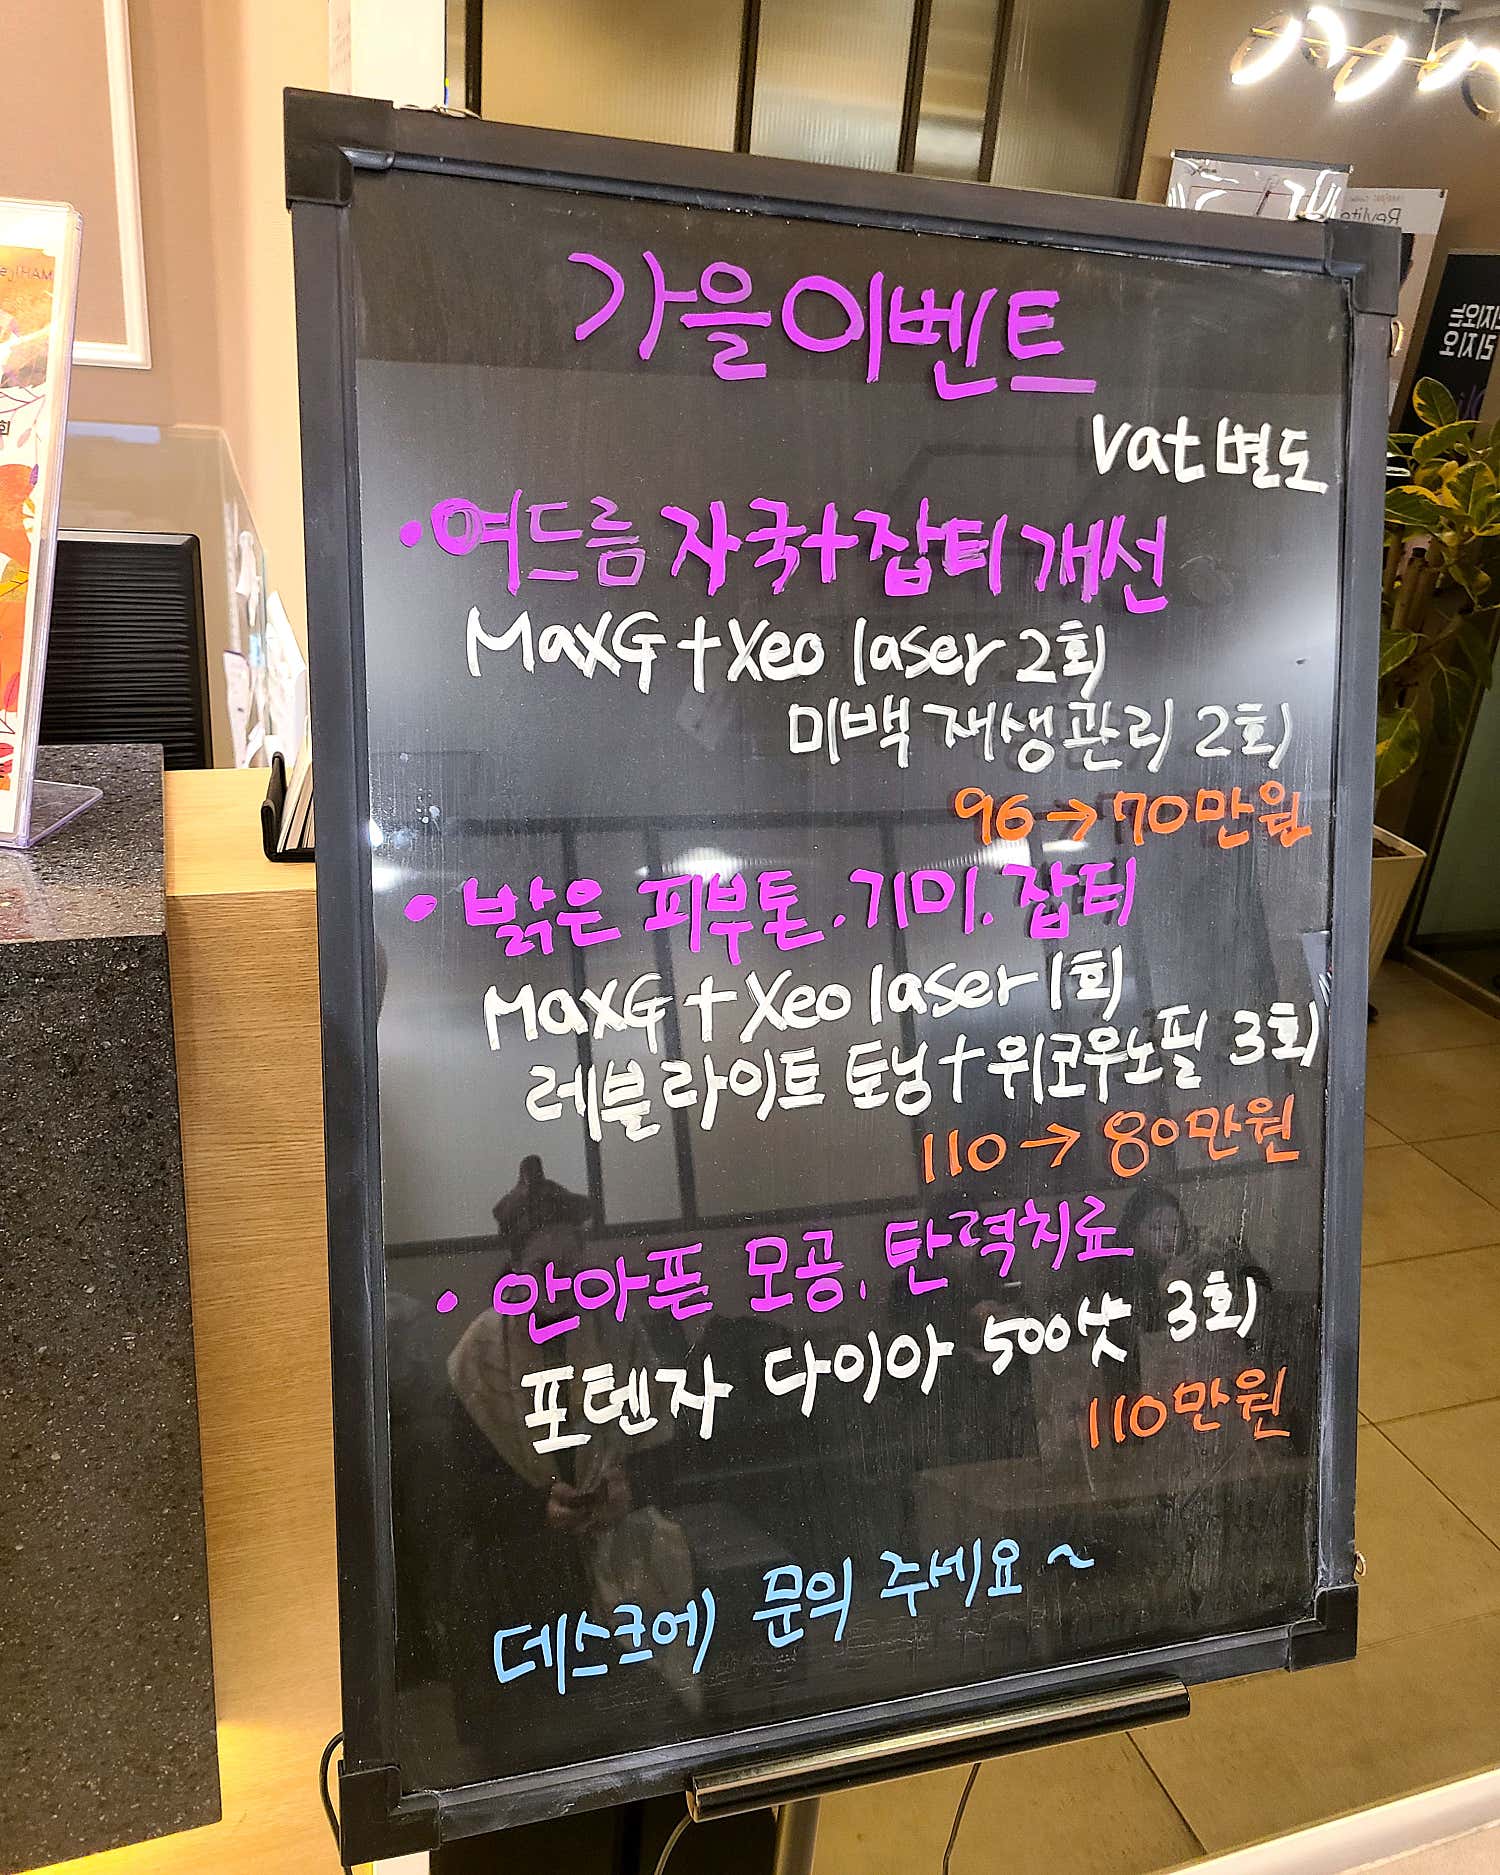 가을이벤트
vat 별도
• 여드름 자국+잡티 개선
MaxG + Xeo laser 2회
미백 재생관리 2회
96 → 70만원
• 밝은 피부톤. 기미. 잡티
MaxG + Xeo laser 1회
레블라이트 토닝 + 위코우노필 3회
110 → 80만원
• 안아픈 모공, 탄력치료
포텐자 다이아 500샷 3회
110만원
데스크에 문의 주세요~